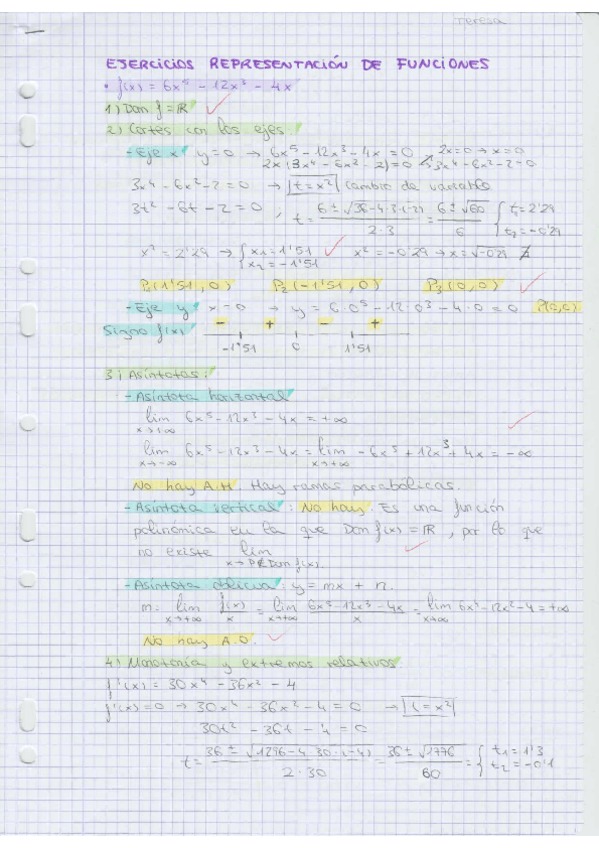 Teresa
EJERCICIOS REPRESENTACIÓN DE FUNCIONES
• f(x) = 6x⁵ - 12x³ - 4x
1) Dom f = ℝ
2) Cortes con los ejes.
- Eje x y=0 → 6x⁵ - 12x³ - 4x = 0 2x=0 → x=0
2x (3x⁴ - 6x² - 2) = 0 3x⁴ - 6x² - 2 = 0
3x⁴ - 6x² - 2 = 0 → t = x² cambio de variable
3t² - 6t - 2 = 0 , t = (6 ± √(36-4·3·(-2)))/(2·3) = (6 ± √60)/6 { t₁ = 2'29 t₂ = -0'29
x² = 2'29 → { x₁ = 1'51 x₂ = -1'51 x² = -0'29 → x = √-0'29 ∄
P₁(1'51, 0) P₂(-1'51, 0) P₃(0,0)
- Eje y x=0 → y = 6·0⁵ - 12·0³ - 4·0 = 0 P(0,0)
Signo f(x) - + - +
-1'51 0 1'51
3) Asíntotas:
- Asíntota horizontal
lim x→+∞ 6x⁵ - 12x³ - 4x = +∞
lim x→-∞ 6x⁵ - 12x³ - 4x = lim x→+∞ -6x⁵ + 12x³ + 4x = -∞
No hay A.H. Hay ramas parabólicas.
- Asíntota vertical: No hay. Es una función
polinómica en la que Dom f(x) = ℝ, por lo que
no existe lim
x→P∉Dom f(x).
- Asíntota oblicua: y = mx + n.
m = lim x→+∞ f(x)/x = lim x→+∞ (6x⁵ - 12x³ - 4x)/x = lim x→+∞ 6x⁴ - 12x² - 4 = +∞
No hay A.O.
4) Monotonía y extremos relativos.
f'(x) = 30x⁴ - 36x² - 4
f'(x) = 0 → 30x⁴ - 36x² - 4 = 0 → t = x²
30t² - 36t - 4 = 0
t = (36 ± √(1296-4·30·(-4)))/(2·30) = (36 ± √1776)/60 = { t₁ = 1'3 t₂ = -0'1